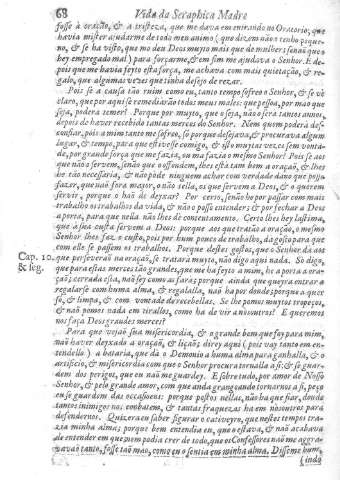 68 Vida da Seraphica Madre
fosse à oração, & a tristeza, que me dava em entrando no Oratorio, que
havia mister ajudarme de todo meu animo (que dizem não o tenho peque-
no, & se ha visto, que mo deu Deus muyto mais que de mulher; senão que o
hey empregado mal) para forçarme, & em fim me ajudava o Senhor. E de-
pois que me havia feyto esta força, me achava com mais quietação, & re-
galo, que algumas vezes que tinha desejo de rezar.
Pois se a cousa tão ruim como eu, tanto tempo sofreo o Senhor, & se vè
claro, que por aqui se remediarão todos meus males: que pessoa, por mao que
seja, poderà temer? Porque por muyto, que o seja, não o serà tantos annos,
depois de haver recebido tantas merces do Senhor. Nem quem poderà des-
confiar, pois a mim tanto me sofreo, só porque desejava, & procurava algum
lugar, & tempo, para que estivesse comigo, & isto muytas vezes sem vonta-
de, por grande força que me fazia, ou ma fazia o mesmo Senhor? Pois se aos
que não o servem, senão que o offendem, lhes està tam bem a oração, & lhes
he tão necessaria, & não pòde ninguem achar com verdade dano que possa
fazer, que não fora mayor, o não tella, os que servem a Deos, & o querem
servir, porque o hão de deyxar? Por certo, senão he por passar com mais
trabalho os trabalhos da vida, & não o posso entender; & por fechar a Deos
a porta, para que nella não lhes dè contentamento. Certo lhes hey lastima,
que à sua custa servem a Deos: porque aos que tratão a oração, o mesmo
Senhor lhes faz o custo, pois por hum pouco de trabalho, dà gosto para que
com elle se passem os trabalhos. Porque destes gostos, que o Senhor dà aos
Cap. 10. que perseverão na oração, se tratarà muyto, não digo aqui nada. Só digo,
& seg. que para estas merces tão grandes, que me ha feyto a mim, he a porta a ora-
ção; cerrada esta, não sey como as farà: porque ainda que queyra entrar a
regalarse com huma alma, & regalalla, não ha por donde; porque a quer
só, & limpa, & com vontade de recebellas. Se lhe pomos muytos tropeços,
& não pomos nada em tirallos, como ha de vir a nòs outros? E queremos
nos faça Deos grandes merces?
Para que vejaõ sua misericordia, & o grande bem que foy para mim,
não haver deyxado a oração, & lição; direy aqui (pois vay tanto em en-
tendello) a bataria, que dà o Demonio a huma alma para ganhalla, & o
artificio, & misericordia com que o Senhor procura tornalla a si: & se guar-
dem dos perigos, que eu não me guardey. E sobre tudo, por amor de Nosso
Senhor, & pelo grande amor, com que anda grangeando tornarnos a si, peço
eu se guardem das occasioens: porque postos nellas, não ha que fiar, donde
tantos inimigos nos combatem, & tantas fraquezas ha em nòs outros para
defendernos. Quizera eu saber figurar o cativeyro, que nestes tempos tra-
zia minha alma; porque bem entendia eu, que o estava, & não acabava
de entender em que, nem podia crer de todo, que os Confessores não me aggra-
vavaõ tanto, fosse tão mao, como eu o sentia em minha alma. Disseme hum,
(indo